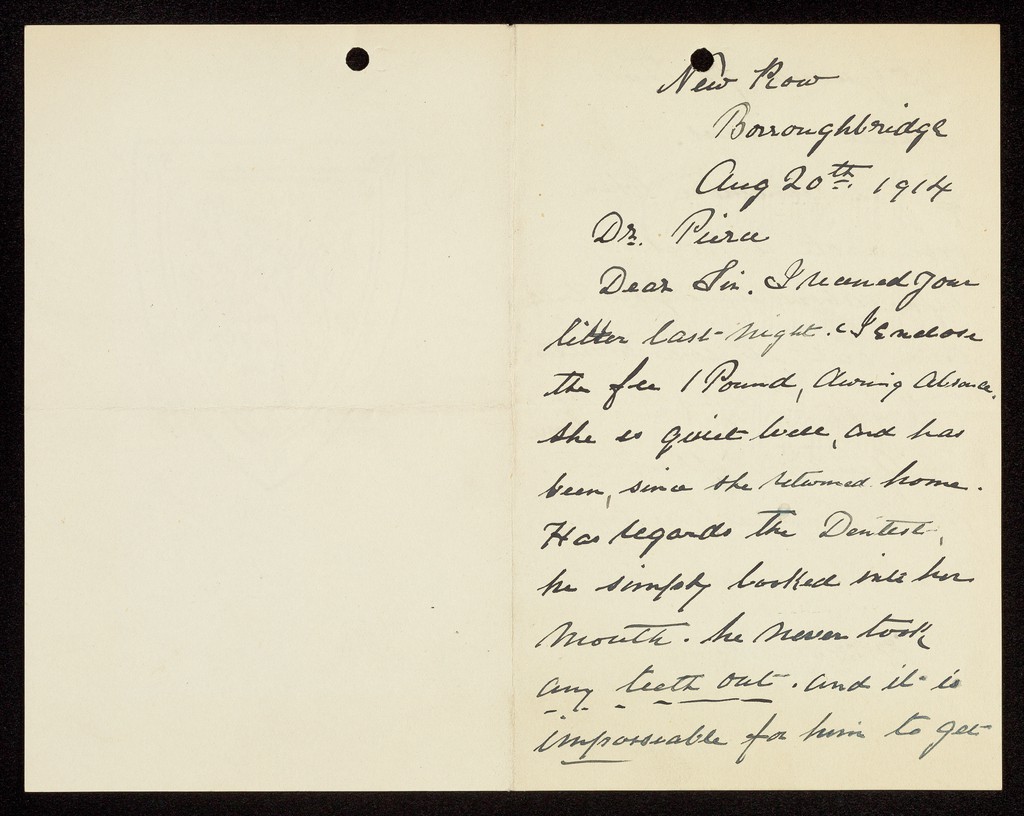 New Row
Borroughbridge
Aug 20th. 1914
Dr. Pierce
Dear Sir. I received your
litter last night. I Enclose
the fee 1 Pound, during absence.
she is quiet well, and has
been, since she returned home.
Has regards the Dentest,
he simply looked into her
mouth. he never took
any teeth out. and it is
impossiable for him to get